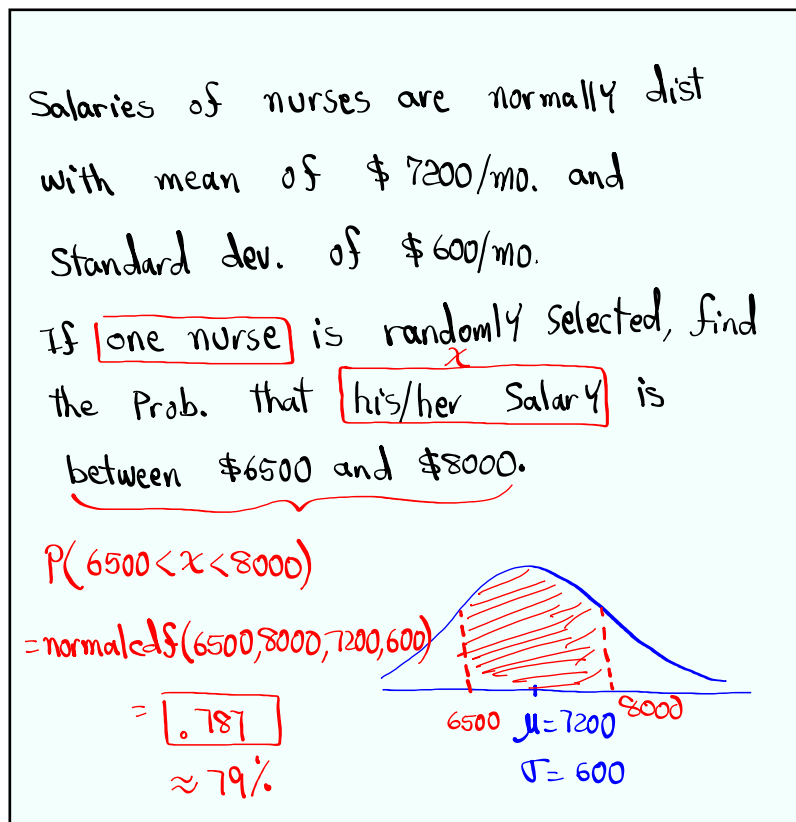 Salaries of nurses are normally dist
with mean of $7200/mo. and
Standard dev. of $600/mo.
If one nurse is randomly selected, find
x
the Prob. that his/her Salary is
between $6500 and $8000.
P(6500<x<8000)
=normalcdf(6500,8000,7200,600)
= .787
≈ 79%
6500 μ=7200 8000
σ= 600